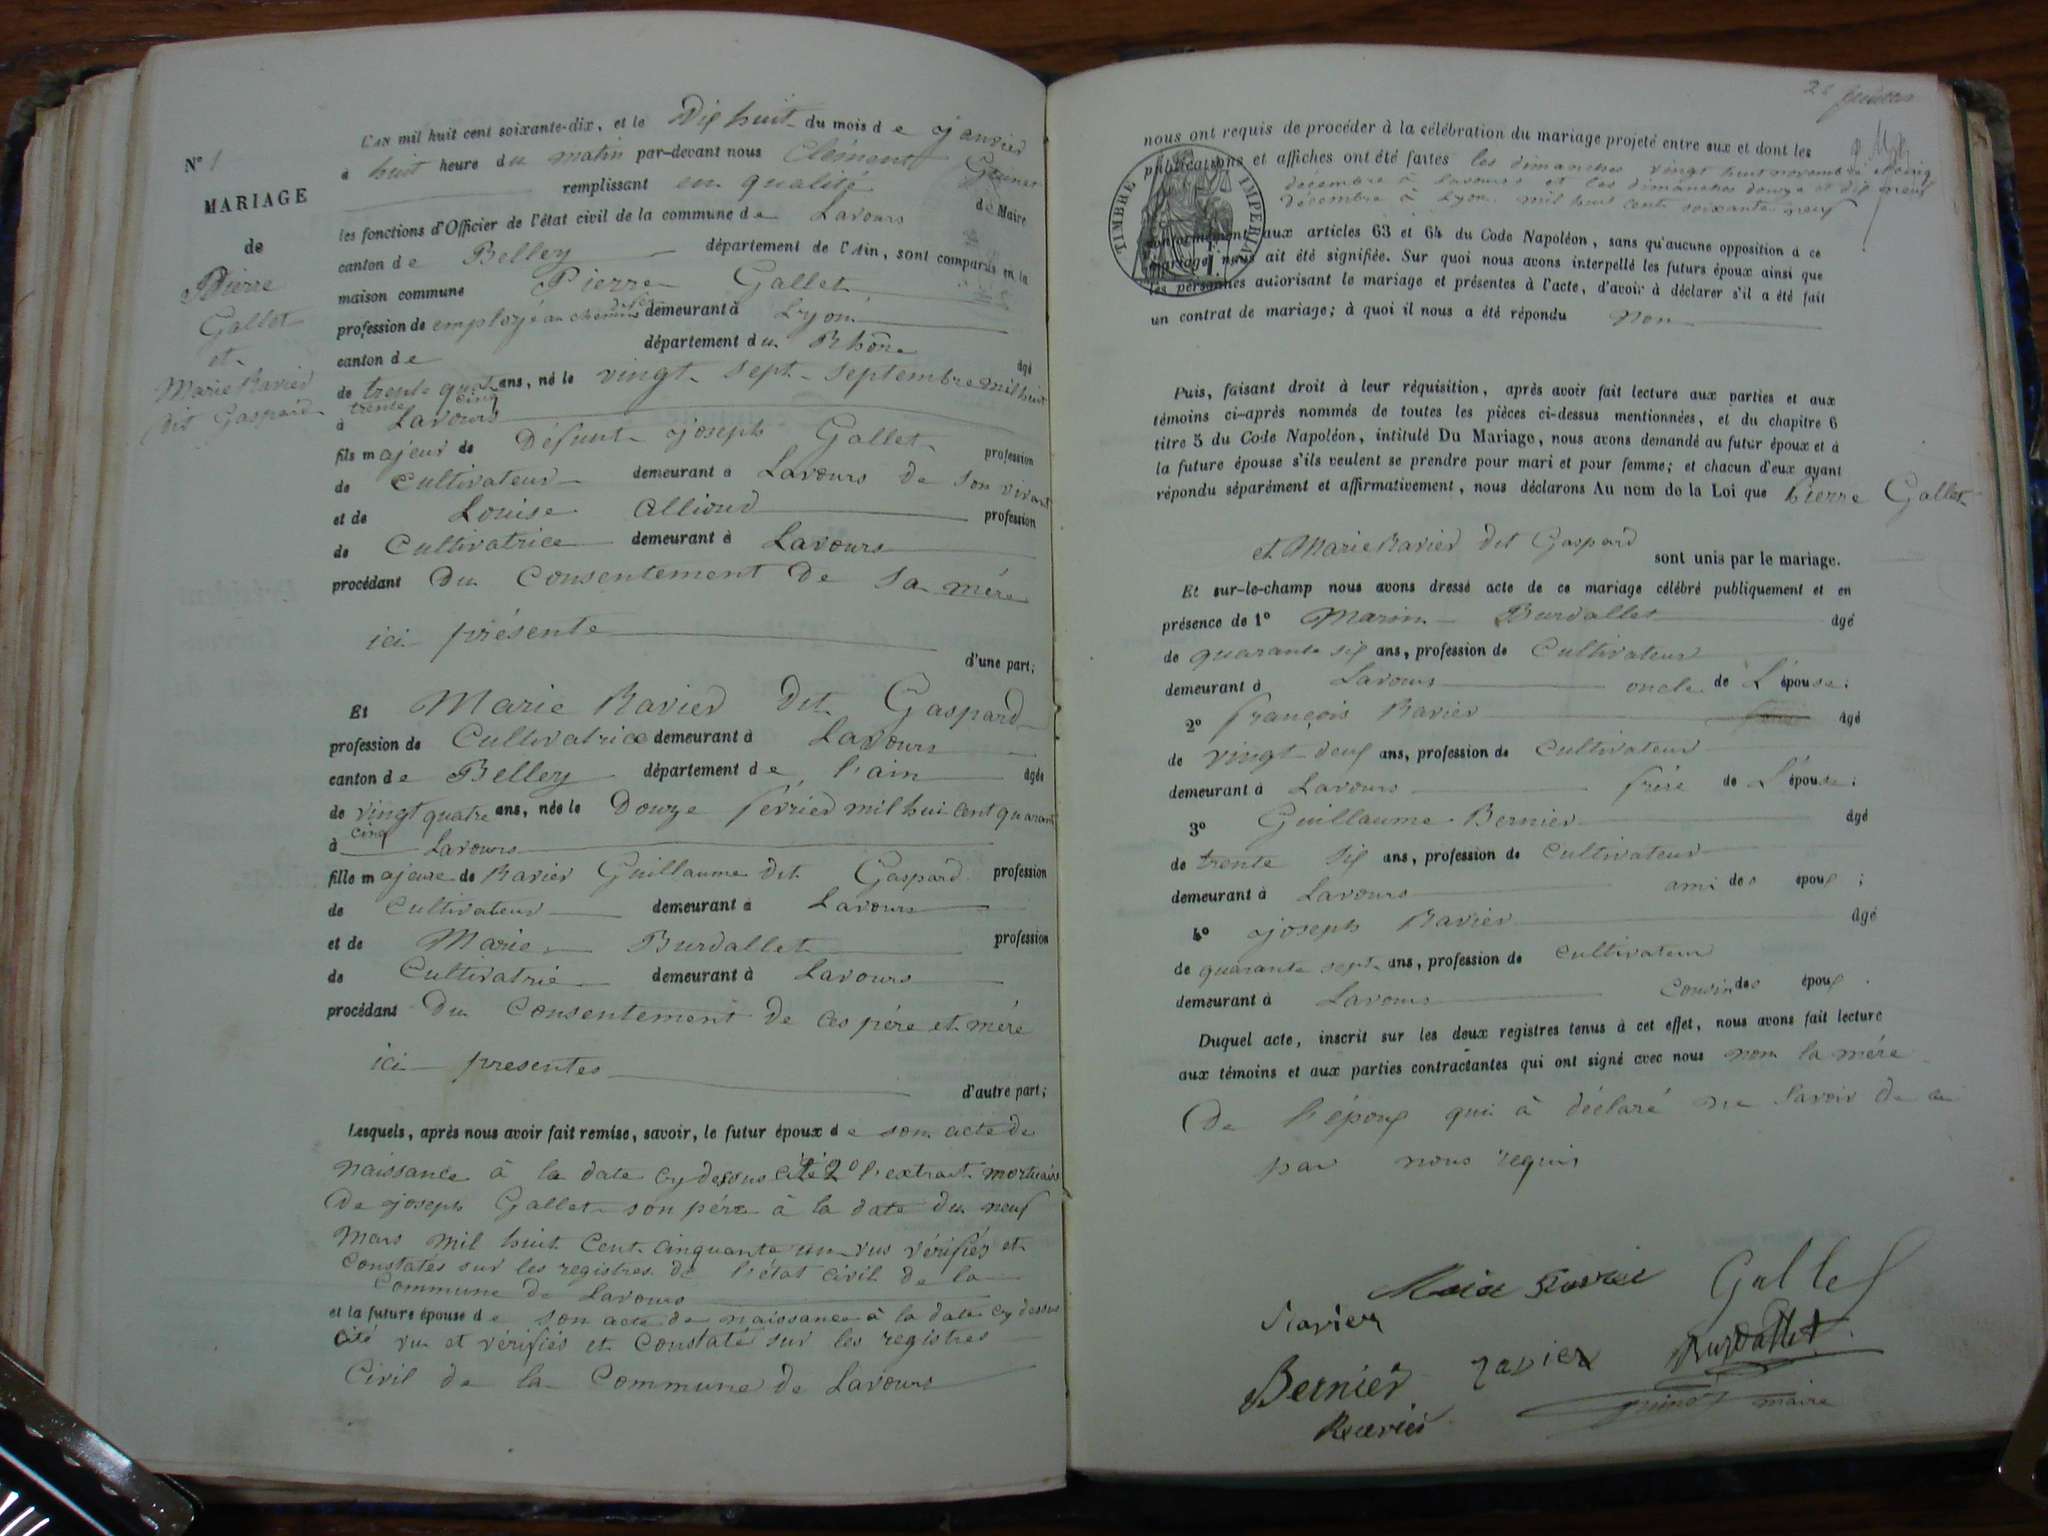 N° 1
MARIAGE
de
Pierre
Gallet
et
Marie Ravier
dit Gaspard
L'AN mil huit cent soixante-dix, et le Dix huit du mois de janvier
à huit heure du matin par-devant nous Clément
remplissant en qualité de Maire
les fonctions d'Officier de l'état civil de la commune de Lavours
canton de Belley département de l'Ain, sont comparus en la
maison commune Pierre Gallet
profession de employé au chemin de fer demeurant à Lyon
canton de département du Rhône âgé
de trente quatre ans, né le vingt sept septembre mil huit
trente cinq
à Lavours
fils majeur de Défunt joseph Gallet profession
de Cultivateur demeurant à Lavours de son vivant
et de Louise Alliod profession
de Cultivatrice demeurant à Lavours
procédant du Consentement de sa mére
ici présente
d'une part;
Et Marie Ravier dit Gaspard
profession de Cultivatrice demeurant à Lavours
canton de Belley département de l'ain âgée
de vingt quatre ans, née le Douze février mil hui cent quarante
cinq
à Lavours
fille majeure de Ravier Guillaume dit Gaspard profession
de Cultivateur demeurant à Lavours
et de Marie Burdallet profession
de Cultivatrie demeurant à Lavours
procédant du Consentement de ces pére et mére
ici presentes
d'autre part;
Lesquels, après nous avoir fait remise, savoir, le futur époux de son acte de
naissance à la date cy dessus cité 2° l'extrait mortuaire
de joseph Gallet son pére à la date du neuf
mars mil huit cent cinquante un vus vérifiés et
Constatés sur les registres de l'état civil de la
Commune de Lavours
et la future épouse de son acte de naissance à la date cy dessus
cité vu et vérifiés et Constaté sur les registres
Civil de la Commune de Lavours
nous ont requis de procéder à la célébration du mariage projeté entre eux et dont les
publications et affiches ont été faites les dimanches vingt huit novembre et cinq
décembre à Lavours et les dimanches douze et dix neuf
décembre à Lyon mil huit cent soixante neuf
TIMBRE IMPERIAL
conformément aux articles 63 et 64 du Code Napoléon, sans qu'aucune opposition à ce
mariage nous ait été signifiée. Sur quoi nous avons interpellé les futurs époux ainsi que
les personnes autorisant le mariage et présentes à l'acte, d'avoir à déclarer s'il a été fait
un contrat de mariage; à quoi il nous a été répondu non
Puis, faisant droit à leur réquisition, après avoir fait lecture aux parties et aux
témoins ci-après nommés de toutes les pièces ci-dessus mentionnées, et du chapitre 6
titre 5 du Code Napoléon, intitulé Du Mariage, nous avons demandé au futur époux et à
la future épouse s'ils veulent se prendre pour mari et pour femme; et chacun d'eux ayant
répondu séparément et affirmativement, nous déclarons Au nom de la Loi que Pierre Gallet
et Marie Ravier dit Gaspard sont unis par le mariage.
Et sur-le-champ nous avons dressé acte de ce mariage célébré publiquement et en
présence de 1° Marin Burdallet âgé
de quarante six ans, profession de Cultivateur
demeurant à Lavours oncle de L'épouse;
2° françois Ravier âgé
de vingt deux ans, profession de Cultivateur
demeurant à Lavours frére de L'épouse;
3° Guillaume Bernier âgé
de trente six ans, profession de Cultivateur
demeurant à Lavours ami des époux;
4° joseph Ravier âgé
de quarante sept ans, profession de Cultivateur
demeurant à Lavours Cousin des époux.
Duquel acte, inscrit sur les deux registres tenus à cet effet, nous avons fait lecture
aux témoins et aux parties contractantes qui ont signé avec nous non la mére
de l'époux qui à déclaré ne savoir de ce
par nous requis
Marie Ravier Gallet
Ravier
Bernier ravier Burdallet
Ravier maire